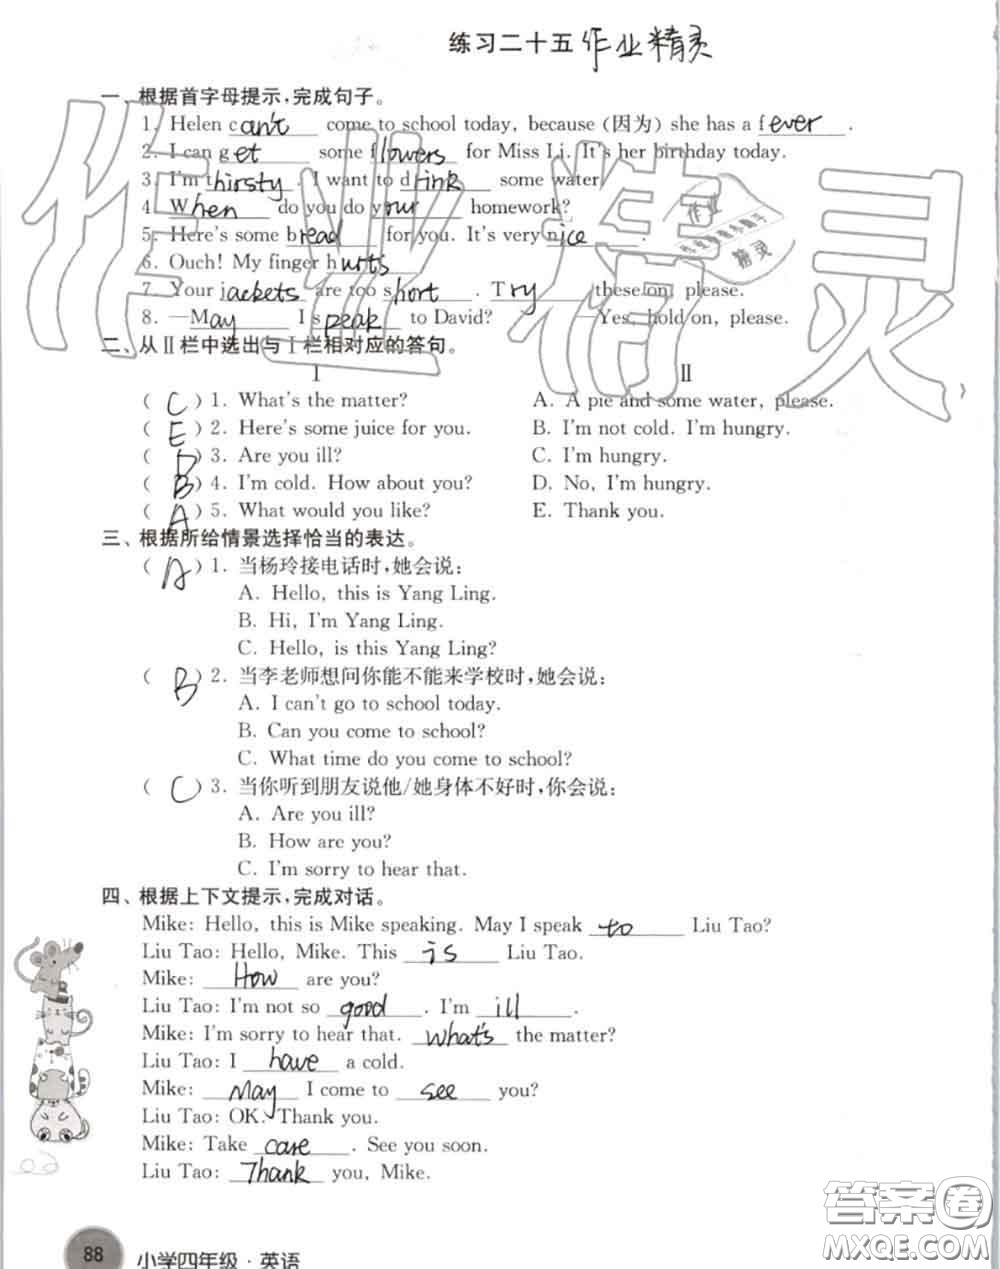 练习二十五 作业精灵
一、根据首字母提示，完成句子。
1. Helen can't come to school today, because (因为) she has a fever.
2. I can get some flowers for Miss Li. It's her birthday today.
3. I'm thirsty. I want to drink some water.
4. When do you do your homework?
5. Here's some bread for you. It's very nice.
6. Ouch! My finger hurts
7. Your jackets are too short. Try these on, please.
8. —May I speak to David? —Yes, hold on, please.
二、从Ⅱ栏中选出与Ⅰ栏相对应的答句。
Ⅰ Ⅱ
( C ) 1. What's the matter? A. A pie and some water, please.
( E ) 2. Here's some juice for you. B. I'm not cold. I'm hungry.
( D ) 3. Are you ill? C. I'm hungry.
( B ) 4. I'm cold. How about you? D. No, I'm hungry.
( A ) 5. What would you like? E. Thank you.
三、根据所给情景选择恰当的表达。
( A ) 1. 当杨玲接电话时，她会说：
A. Hello, this is Yang Ling.
B. Hi, I'm Yang Ling.
C. Hello, is this Yang Ling?
( B ) 2. 当李老师想问你能不能来学校时，她会说：
A. I can't go to school today.
B. Can you come to school?
C. What time do you come to school?
( C ) 3. 当你听到朋友说他/她身体不好时，你会说：
A. Are you ill?
B. How are you?
C. I'm sorry to hear that.
四、根据上下文提示，完成对话。
Mike: Hello, this is Mike speaking. May I speak to Liu Tao?
Liu Tao: Hello, Mike. This is Liu Tao.
Mike: How are you?
Liu Tao: I'm not so good. I'm ill.
Mike: I'm sorry to hear that. what's the matter?
Liu Tao: I have a cold.
Mike: May I come to see you?
Liu Tao: OK. Thank you.
Mike: Take care. See you soon.
Liu Tao: Thank you, Mike.
88 小学四年级·英语
作业精灵
答案卷
MXQE.COM